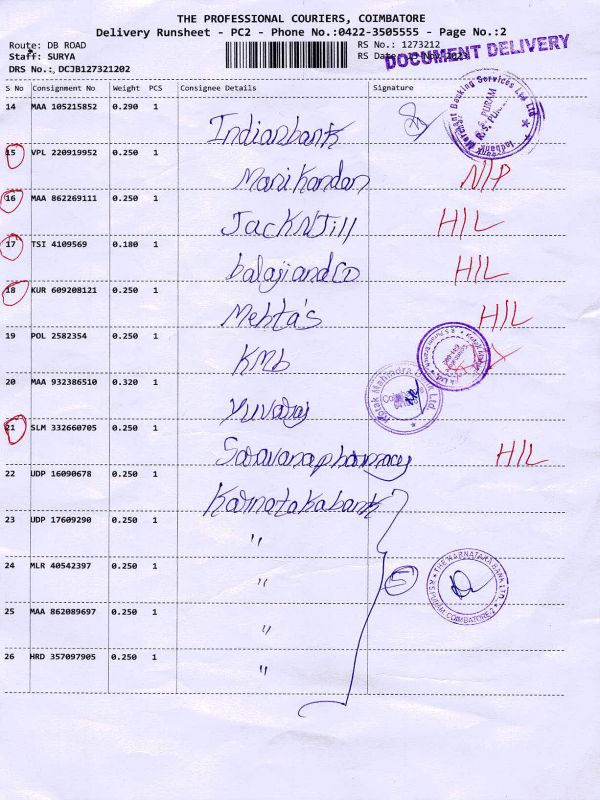 THE PROFESSIONAL COURIERS, COIMBATORE
Delivery Runsheet - PC2 - Phone No.:0422-3505555 - Page No.:2
Route: DB ROAD
RS No.: 1273212
Staff: SURYA
RS Date:
DOCUMENT DELIVERY
DRS No.: DCJB127321202
S No Consignment No Weight PCS Consignee Details Signature
14 MAA 105215852 0.290 1 Indianbank
15 VPL 220919952 0.250 1 Manikandan N/P
16 MAA 862269111 0.250 1 JackNJill H/L
17 TSI 4109569 0.180 1 balajiandCo H/L
18 KUR 609208121 0.250 1 Mehta's H/L
19 POL 2582354 0.250 1 KMb
20 MAA 932386510 0.320 1 Yuvaraj
Kotak Mahindra Bank Ltd.
21 SLM 332660705 0.250 1 Saravanapharmacy H/L
22 UDP 16090678 0.250 1 Karnatakabank
23 UDP 17609290 0.250 1 "
24 MLR 40542397 0.250 1 " 5
THE KARNATAKA BANK LTD.
R.S. PURAM, COIMBATORE-2
25 MAA 862089697 0.250 1 "
26 HRD 357097905 0.250 1 "